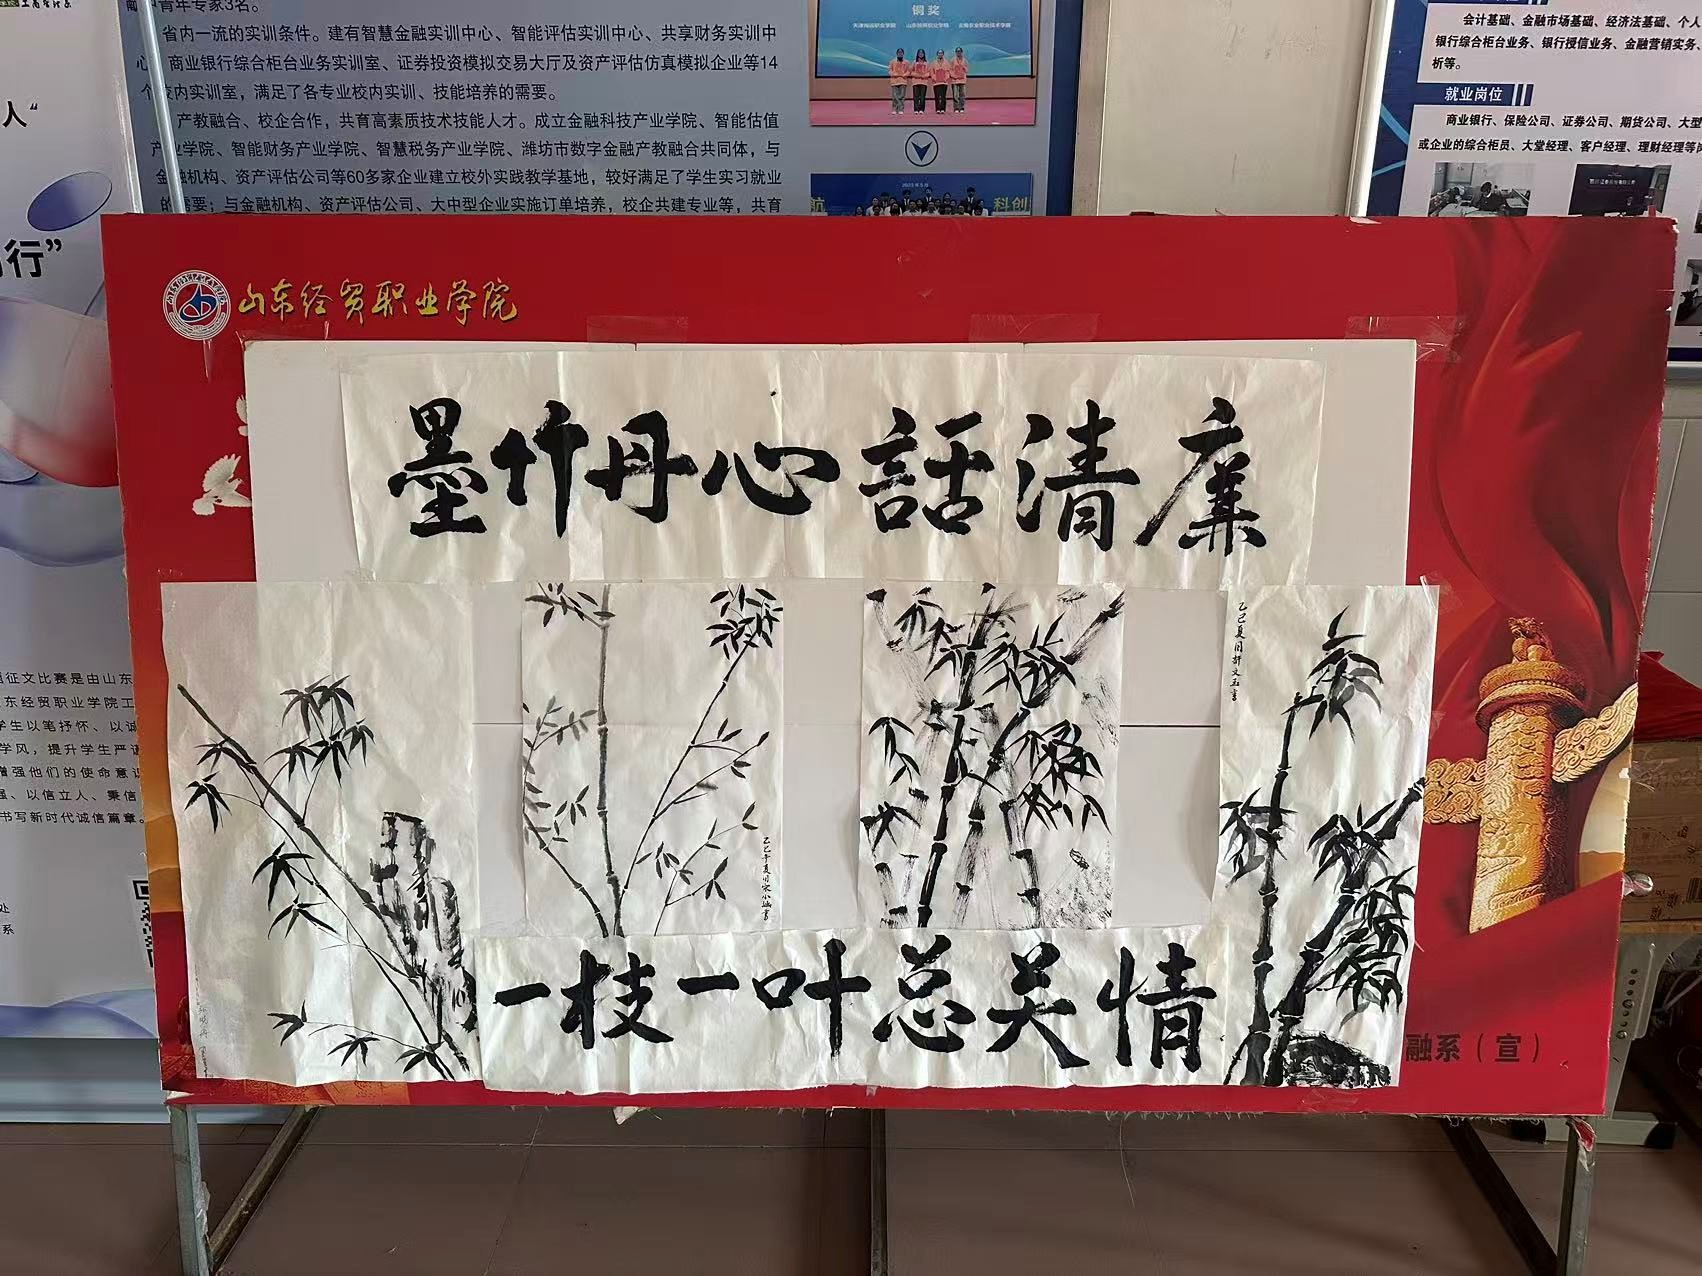 中青年专家3名。
省内一流的实训条件。建有智慧金融实训中心、智能评估实训中心、共享财务实训中
心、商业银行综合柜台业务实训室、证券投资模拟交易大厅及资产评估仿真模拟企业等14
个校内实训室，满足了各专业校内实训、技能培养的需要。
产教融合、校企合作，共育高素质技术技能人才。成立金融科技产业学院、智能估值
产业学院、智能财务产业学院、智慧税务产业学院、潍坊市数字金融产教融合共同体，与
金融机构、资产评估公司等60多家企业建立校外实践教学基地，较好满足了学生实习就业
的需要；与金融机构、资产评估公司、大中型企业实施订单培养，校企共建专业等，共育
铜奖
2023年5月
航
科创
会计基础、金融市场基础、经济法基础、个人
银行综合柜台业务、银行授信业务、金融营销实务、
析等。
就业岗位
商业银行、保险公司、证券公司、期货公司、大型
或企业的综合柜员、大堂经理、客户经理、理财经理等
人“
行”
山东经贸职业学院
墨竹丹心話清廉
乙巳夏月許文玉書
一枝一叶总关情
征文比赛是由山东
东经贸职业学院工
学生以笔抒怀、以诚
学风，提升学生严谨
增强他们的使命意识
强、以信立人、秉信
书写新时代诚信篇章。
处
系
融系（宣）